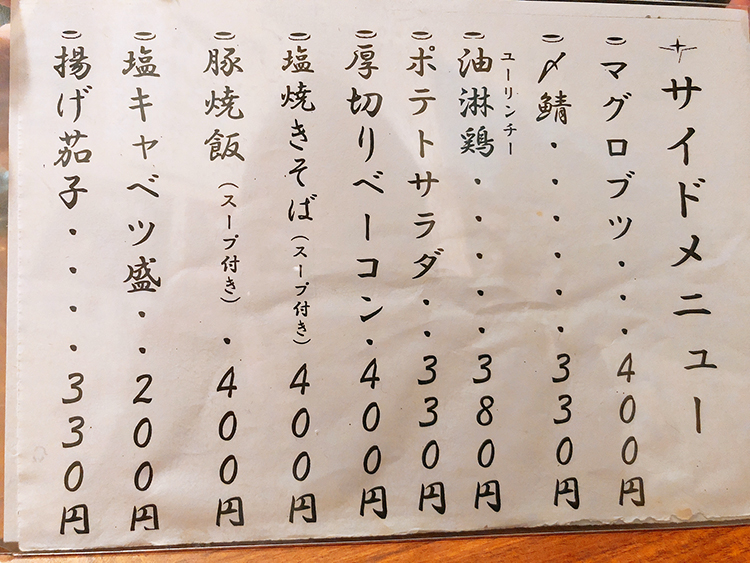 サイドメニュー
マグロブツ・・・400円
〆鯖・・・・・・330円
油淋鶏・・・・・380円
ユーリンチー
ポテトサラダ・・330円
厚切りベーコン・400円
塩焼きそば(スープ付き)400円
豚焼飯(スープ付き)・400円
塩キャベツ盛・・200円
揚げ茄子・・・・330円